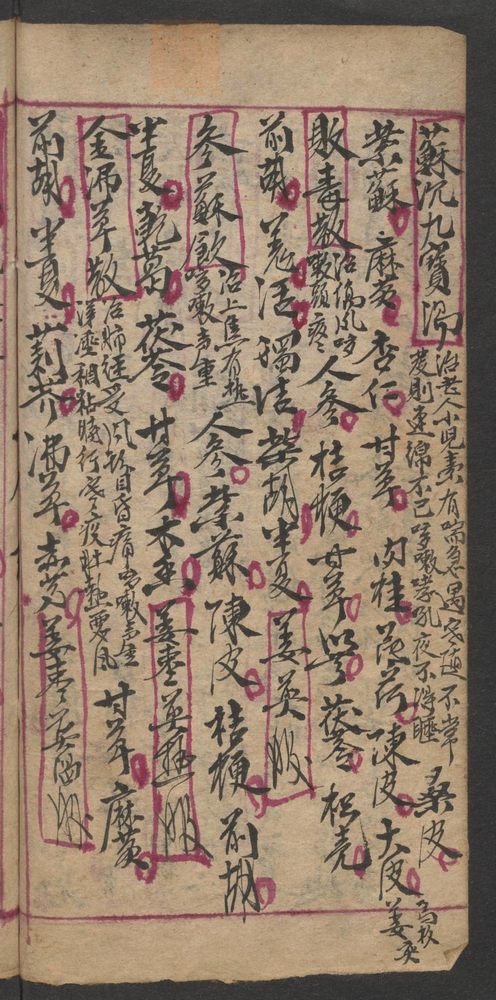 蘇沉九寶湯 治老人小兒素有喘急遇寒 不常 桑皮
發則連綿不已咳嗽哮吼夜不得睡
紫蘇 麻黃 杏仁 甘草 肉桂 薄荷 陳皮 大皮 姜 烏枚
敗毒散 治傷風咳嗽頭疼 人參 桔梗 甘草 芎 茯苓 枳壳
前胡 羌活 獨活 柴胡 半夏 姜煎服
參蘇飲 治上焦有熱咳嗽声重 人參 紫蘇 陳皮 桔梗 前胡
半夏 乾葛 茯苓 甘草 木香 姜枣煎 服
金沸草散 治肺經受風 目昏 咳嗽声重
涕唾稠粘 風 甘草 麻黃
前胡 半夏 荆芥 沸草 赤芍 姜枣煎温服